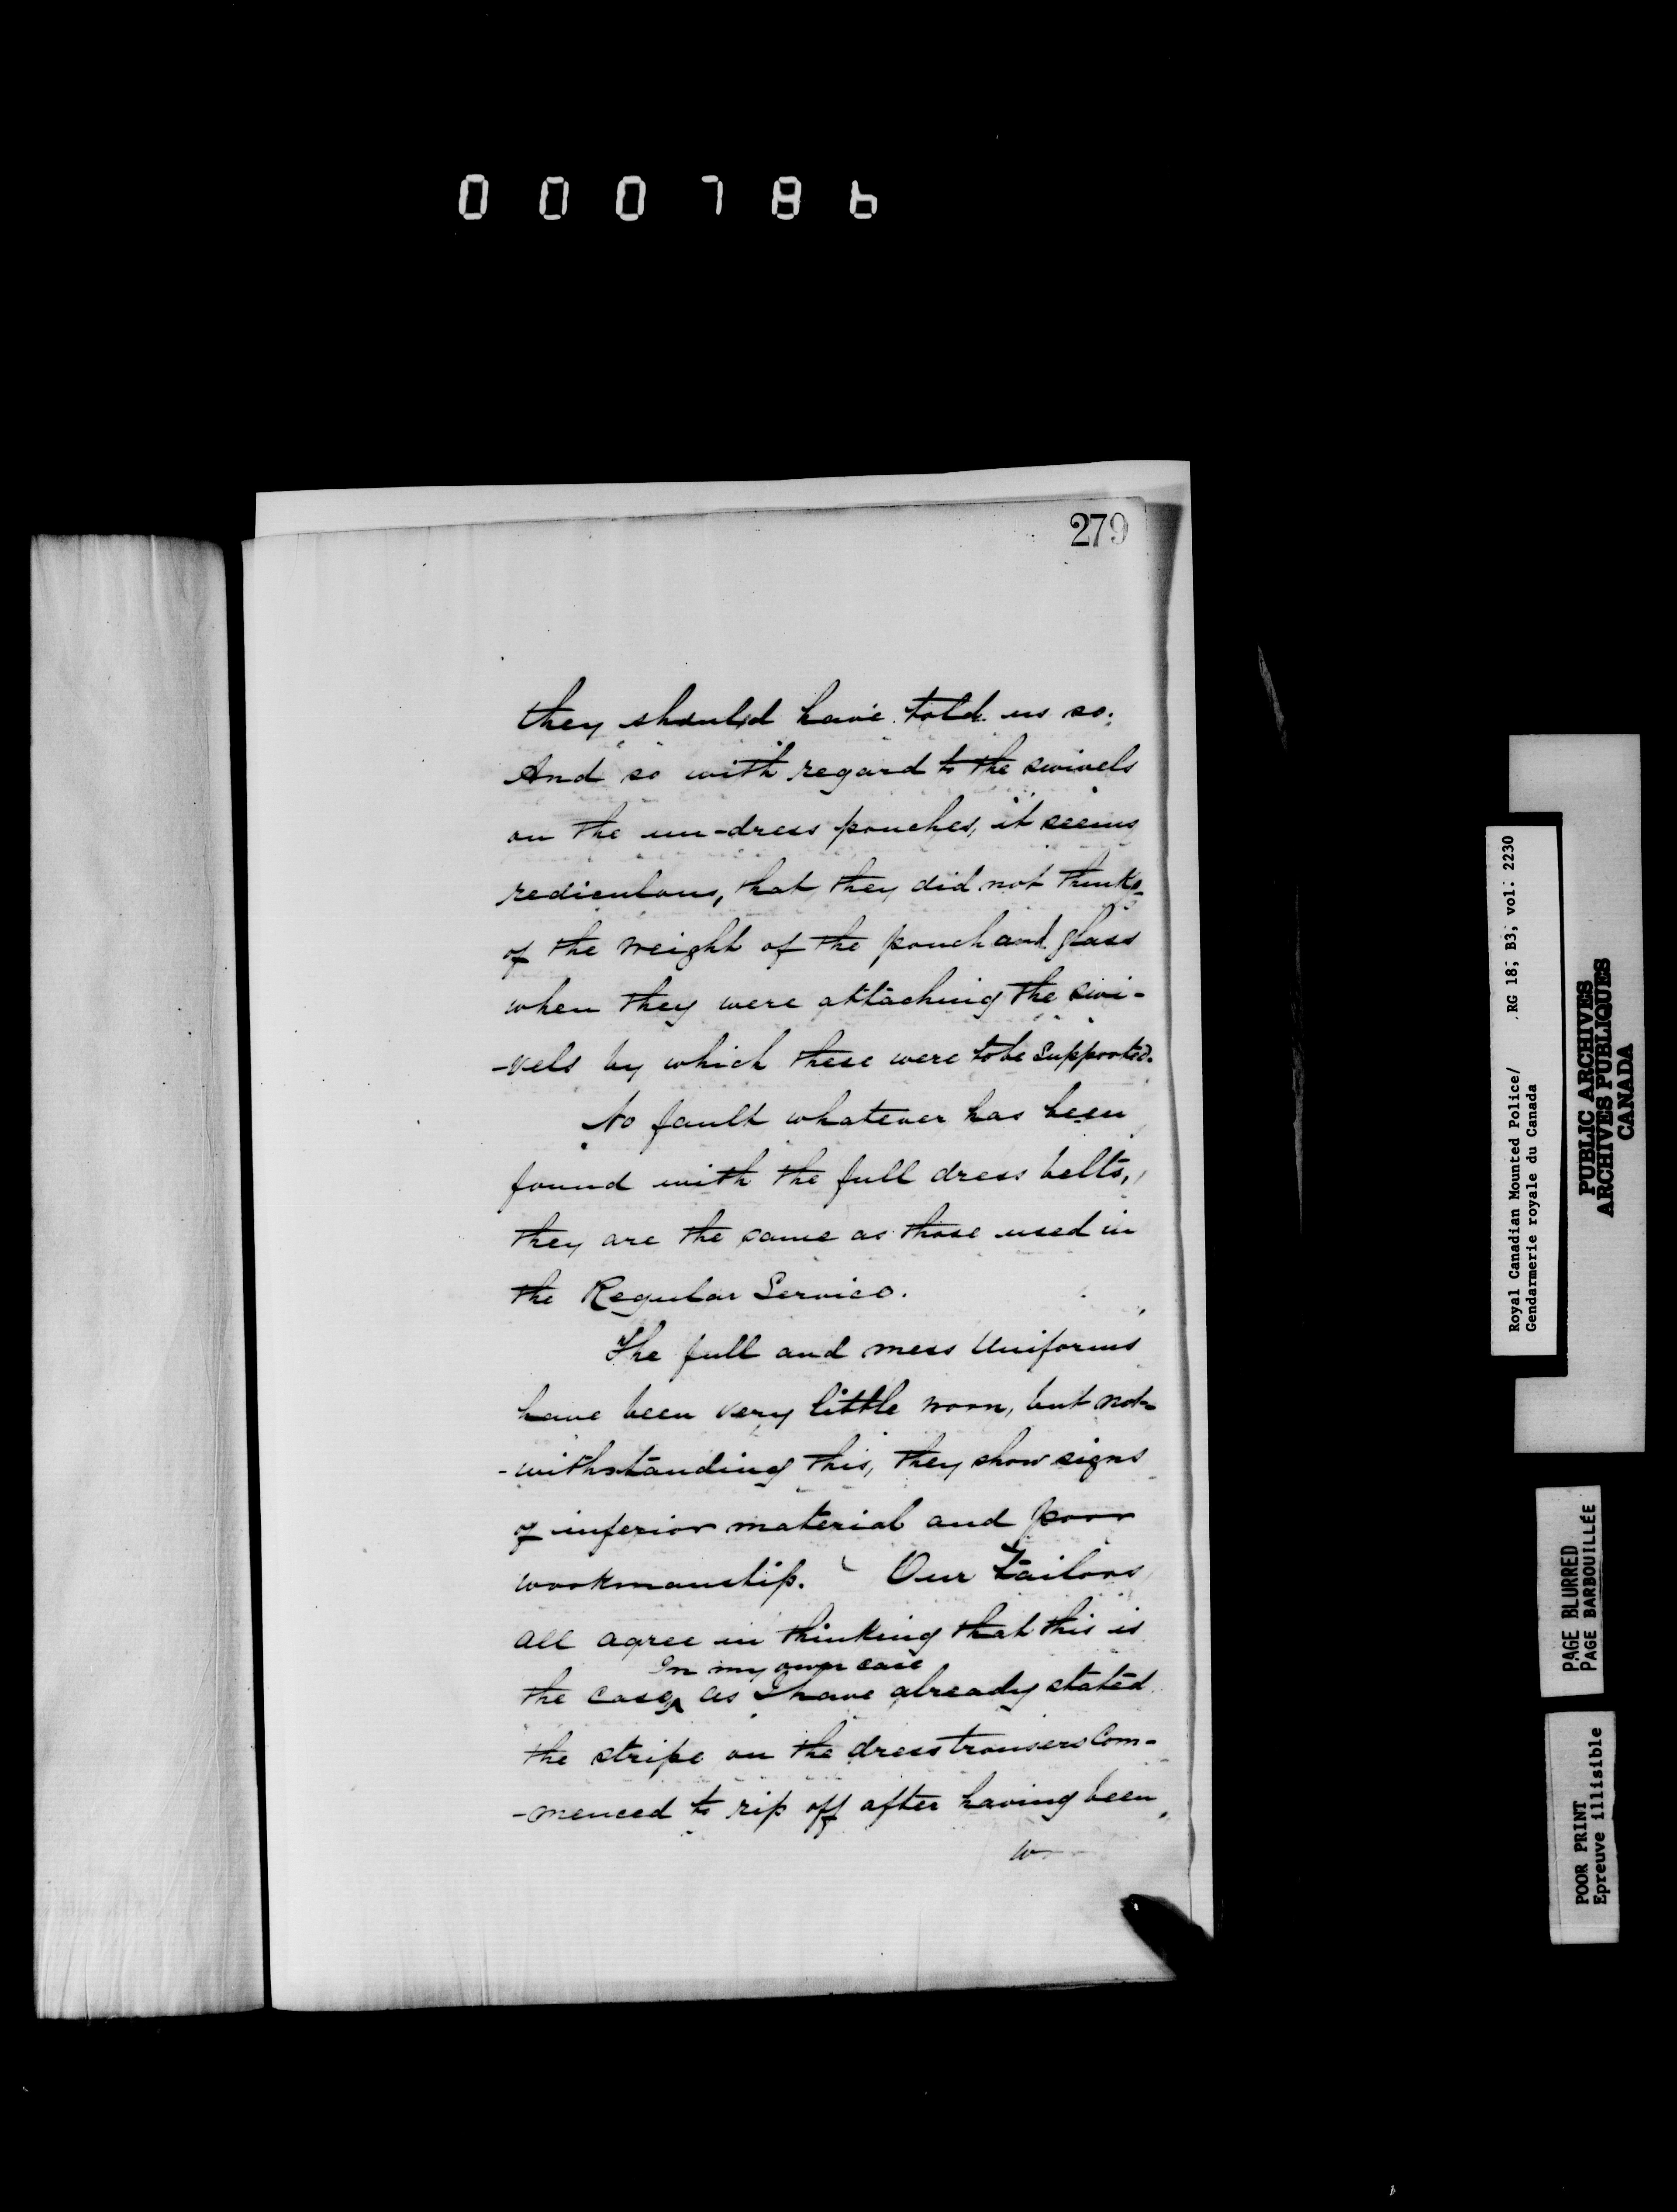 000786
279
they should have told us so.
And so with regard to the swivels
on the un-dress pouches, it seems
rediculous, that they did not think
of the weight of the pouch and glass
when they were attaching the swi-
-vels by which these were to be supported.
No fault whatever has been
found with the full dress belts,
they are the same as those used in
the Regular Service.
The full and mess Uniforms
have been very little worn, but not-
-withstanding this, they show signs
of inferior material and poor
workmanship. Our Tailors
all agree in thinking that this is
In my own case
the case, as I have already stated
the stripe on the dress trousers Com-
-menced to rip off after having been
Royal Canadian Mounted Police/ RG 18, B3, vol. 2230
Gendarmerie royale du Canada
PUBLIC ARCHIVES
ARCHIVES PUBLIQUES
CANADA
PAGE BLURRED
PAGE BARBOUILLÉE
POOR PRINT
Epreuve illisible